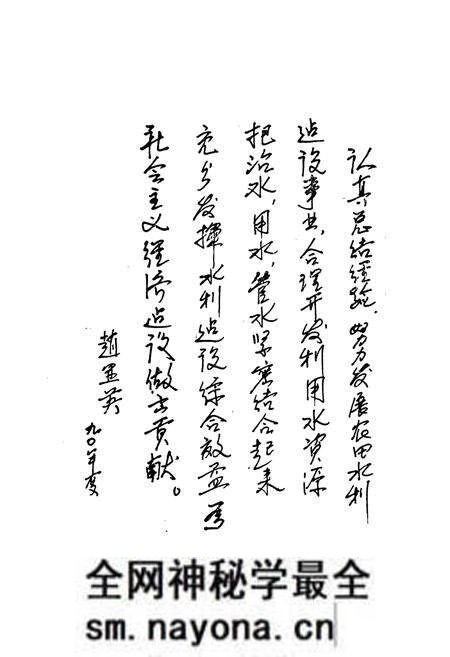 认真总结经验,努力发展农田水利
建设事业,合理开发利用水資源
把治水,用水,管水紧密结合起来
充分发揮水利建设综合效益 為
社会主义經济建设做出貢献。
趙 英
九〇年
全网神秘学最全
sm.nayona.cn